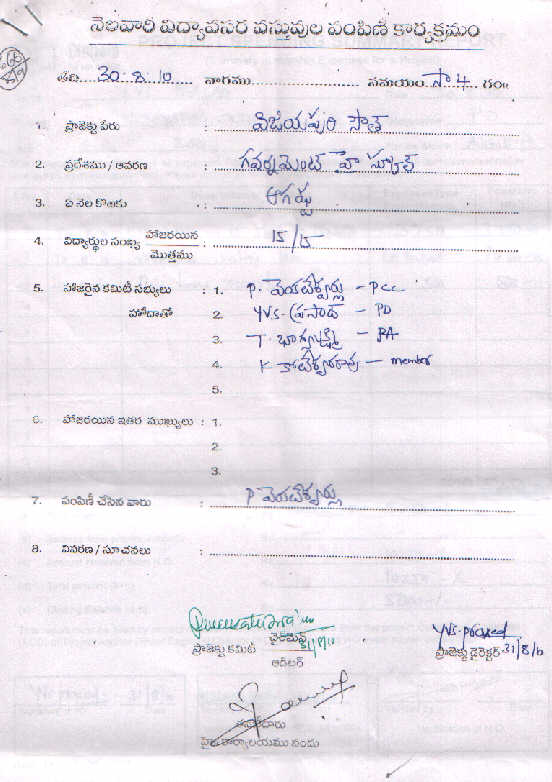 నెలవారి విద్యావసర వస్తువుల పంపిణీ కార్యక్రమం
తేది 30-8-10 వారము సమయం సా 4 గం॥
1. ప్రాజెక్టు పేరు : విజయపురి సౌత్
2. ప్రదేశము / ఆవరణ : గవర్నమెంట్ హై స్కూల్
3. ఏ నెల కొఱకు : ఆగష్టు
4. విద్యార్థుల సంఖ్య హాజరయిన / మొత్తము : 15/15
5. హాజరైన కమిటీ సభ్యులు : 1. P. - PCC
హోదాతో 2. YVS. ప్రసాద్ - PD
3. T. భాగ్యలక్ష్మి - PA
4. K కోటేశ్వరరావు - member
5.
6. హాజరయిన ఇతర ముఖ్యులు : 1.
2.
3.
7. పంపిణీ చేసిన వారు : P
8. వివరణ / సూచనలు :
చైర్మన్ YVS. prasad
ప్రాజెక్టు కమిటీ 31/8/10 ప్రాజెక్టు డైరెక్టర్ 31/8/10
ఆడిటర్
కార్యాలయము నందు